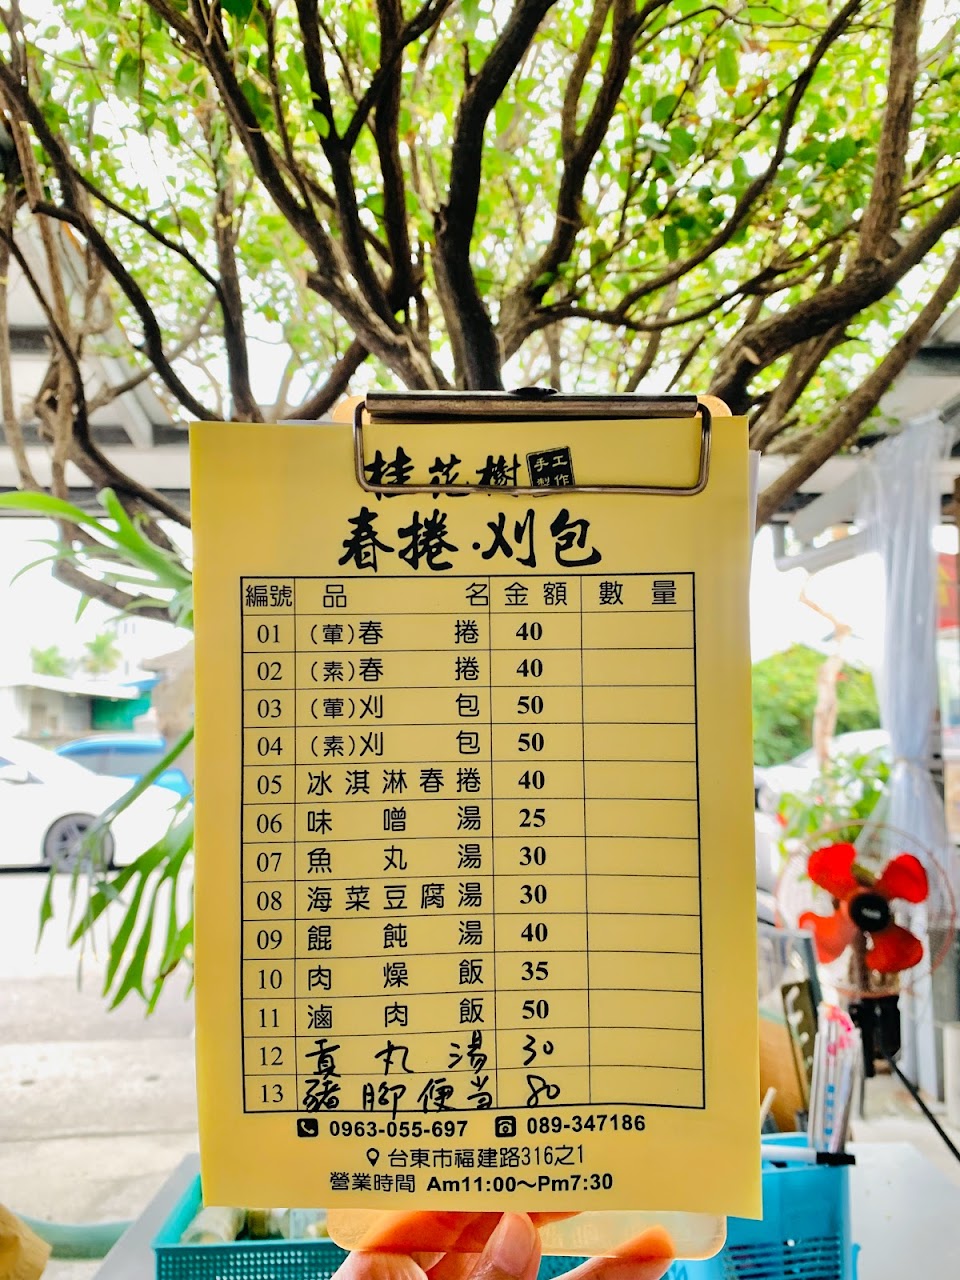 桂花樹 手工製作
春捲·刈包
編號 品名 金額 數量
01 (葷)春捲 40
02 (素)春捲 40
03 (葷)刈包 50
04 (素)刈包 50
05 冰淇淋春捲 40
06 味噌湯 25
07 魚丸湯 30
08 海菜豆腐湯 30
09 餛飩湯 40
10 肉燥飯 35
11 滷肉飯 50
12 貢丸湯 30
13 豬腳便当 80
0963-055-697 089-347186
台東市福建路316之1
營業時間 Am11:00～Pm7:30